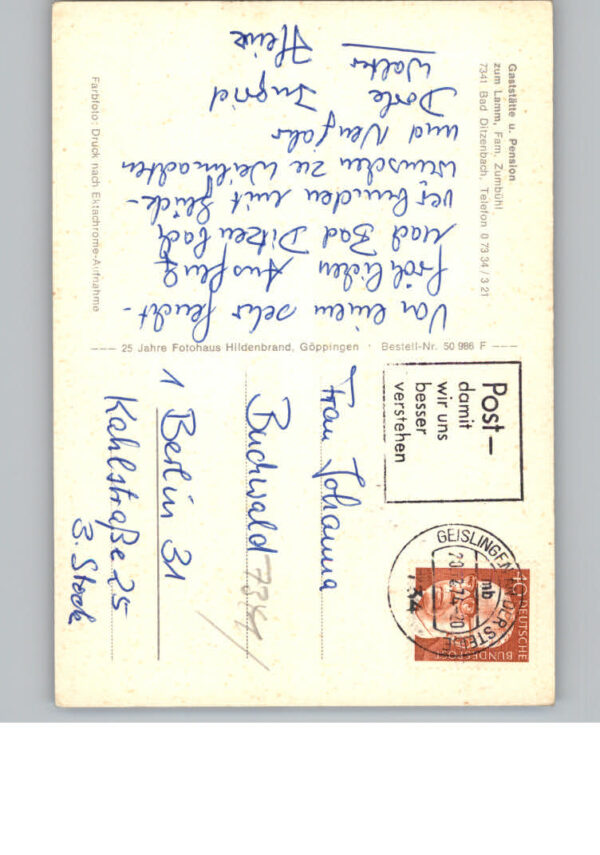 Gaststätte u. Pension
zum Lamm, Fam. Zumbühl
7341 Bad Ditzenbach, Telefon 0 73 34 / 3 21
Von einem sehr feucht-
fröhlichen Ausflug
nach Bad Ditzenbach
verbunden mit Glück-
wünschen zu Weihnachten
und Neujahr
Dorle Ingrid
Walter Heinz
Farbfoto: Druck nach Ektachrome-Aufnahme
25 Jahre Fotohaus Hildenbrand, Göppingen · Bestell-Nr. 50 986 F
Post–
damit
wir uns
besser
verstehen
GEISLINGEN AN DER STEIGE
mb
734
40
DEUTSCHE
BUNDESPOST
Frau Johanna
Buchwald
1 Berlin 31
Kahlstraße 25
3. Stock